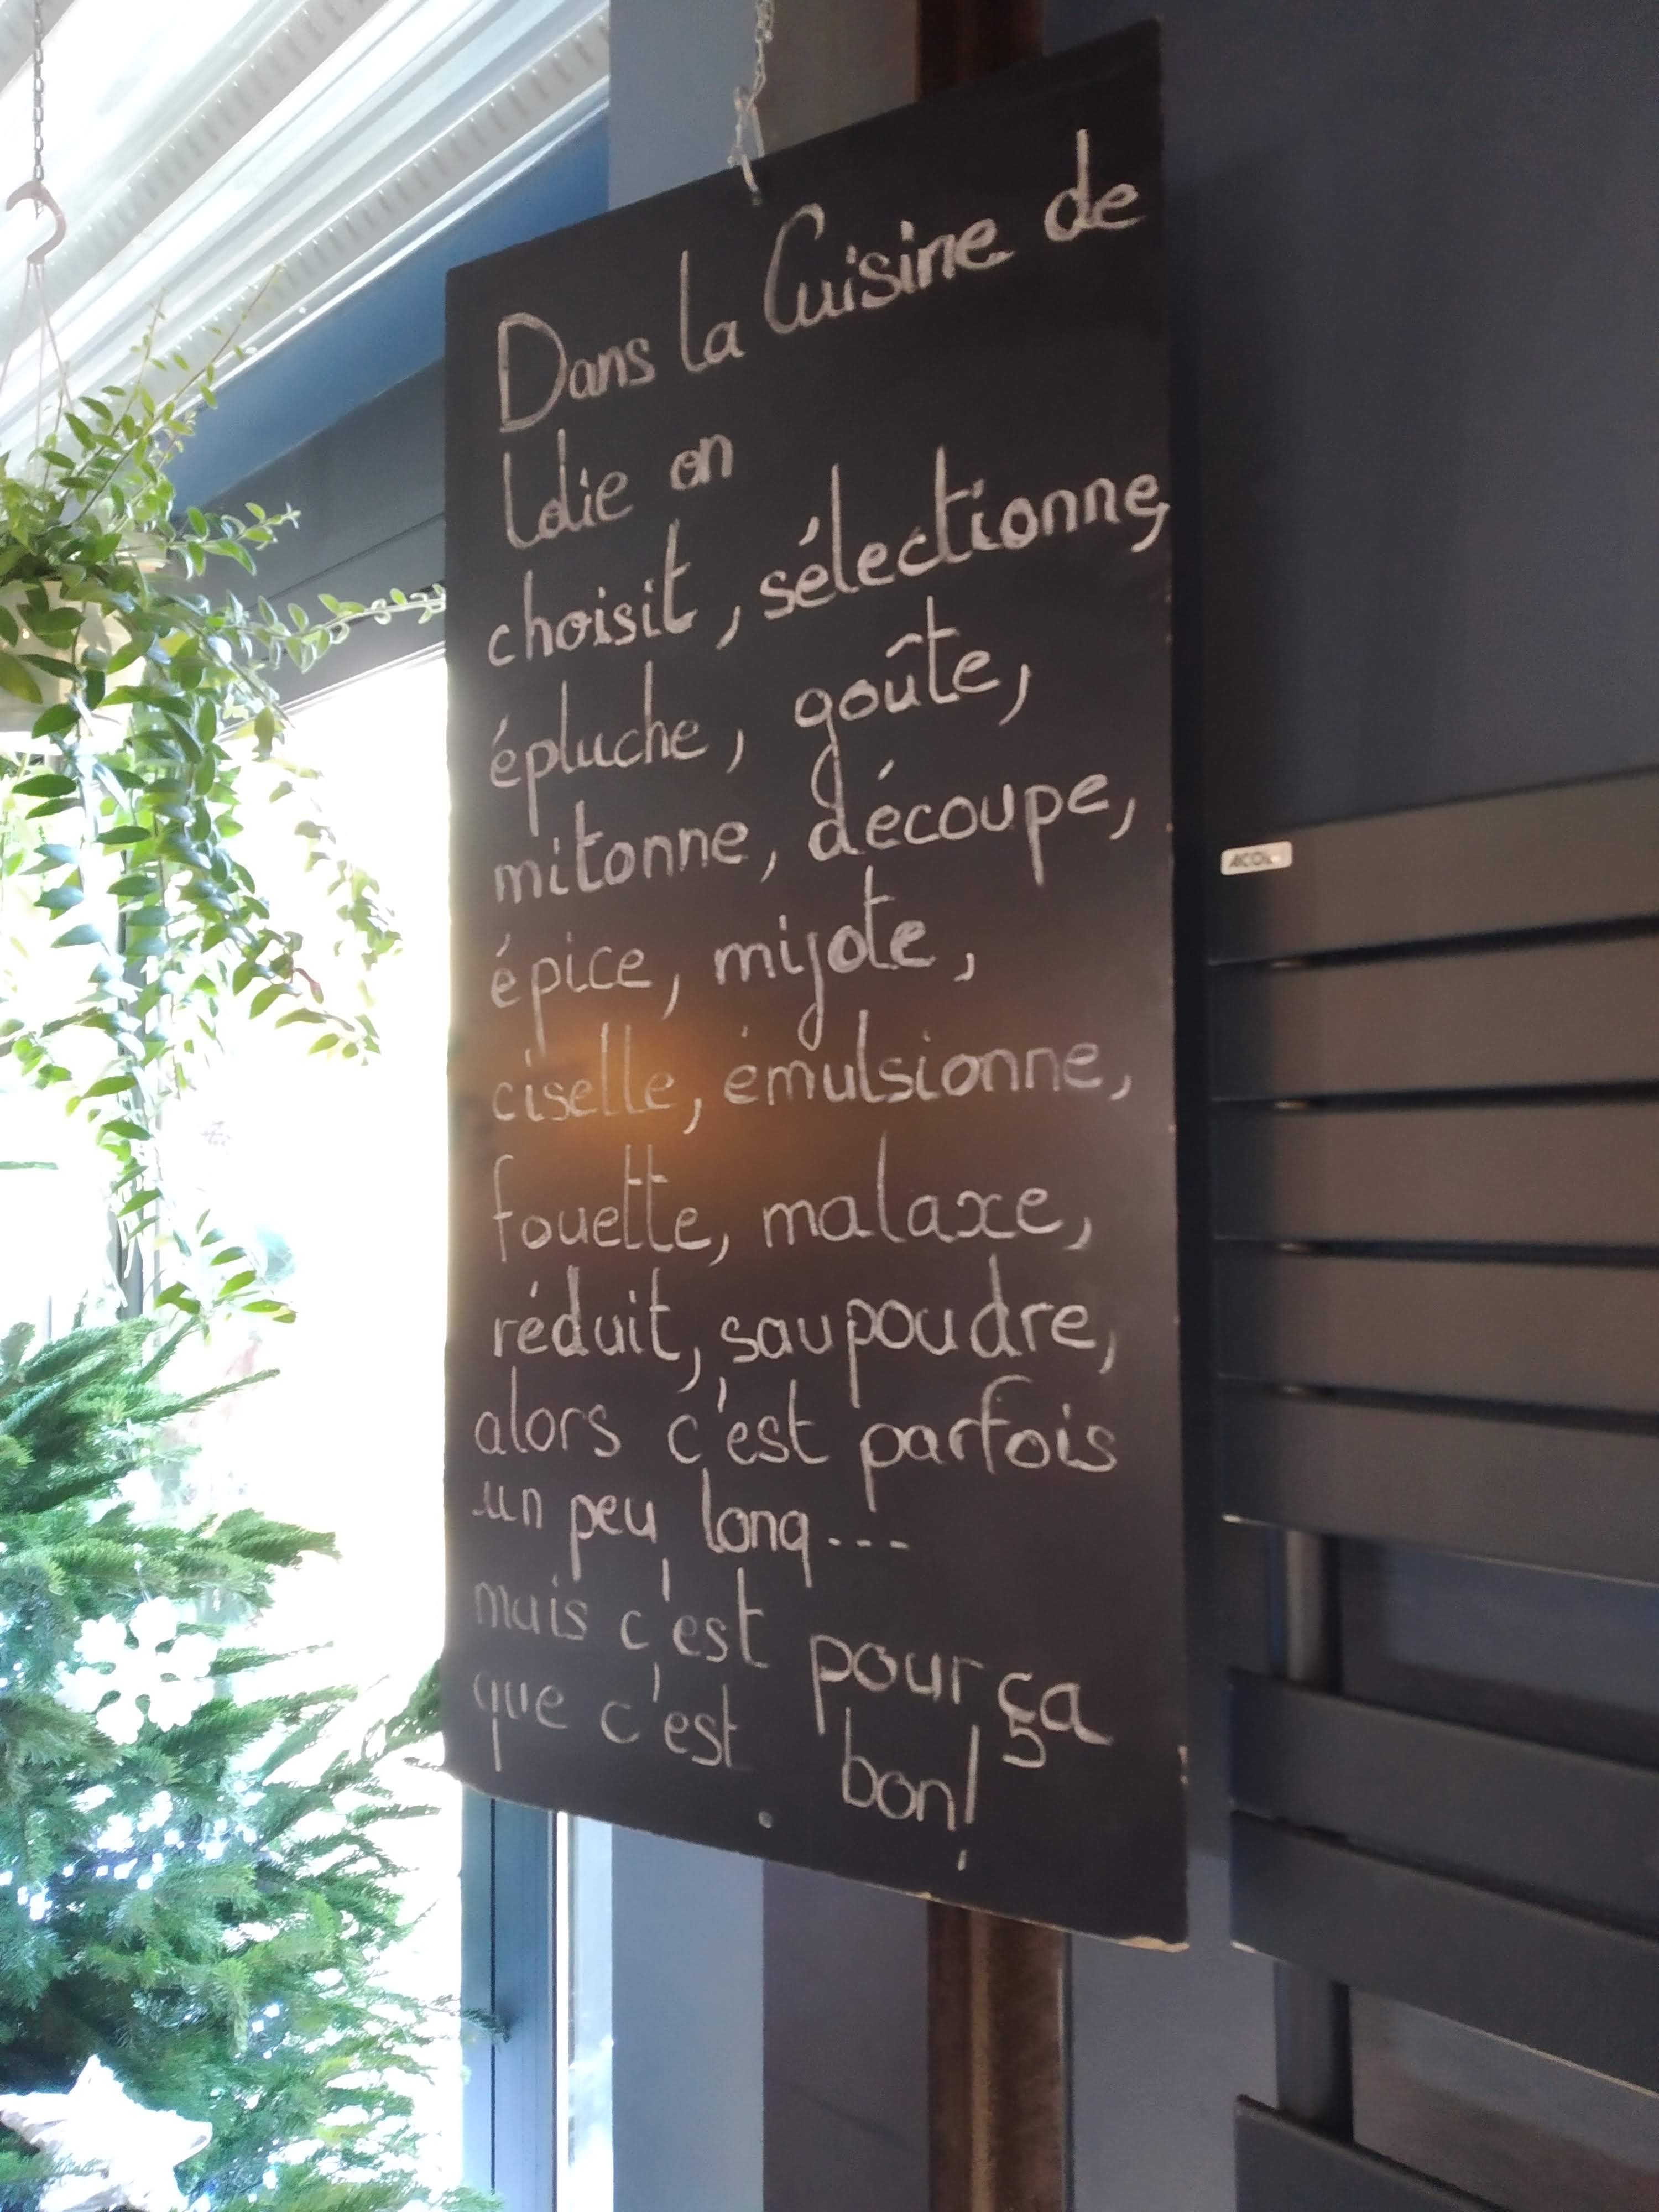 Dans la Cuisine de
Lolie on
choisit, sélectionne,
épluche, goûte,
mitonne, découpe,
épice, mijote,
ciselle, émulsionne,
fouette, malaxe,
réduit, saupoudre,
alors c'est parfois
un peu long...
mais c'est pour ça
que c'est bon!